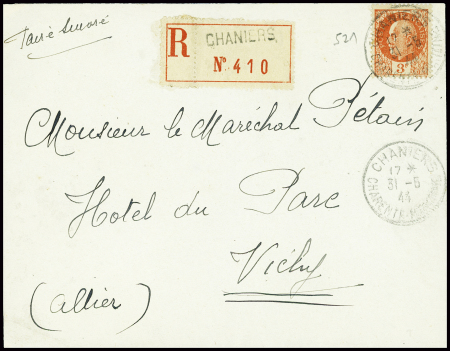 R
CHANIERS
N° 410
521
3F
Monsieur le Maréchal Pétain
Hotel du Parc
Vichy
(Allier)
CHANIERS
17 *
31 - 5
CHARENTE